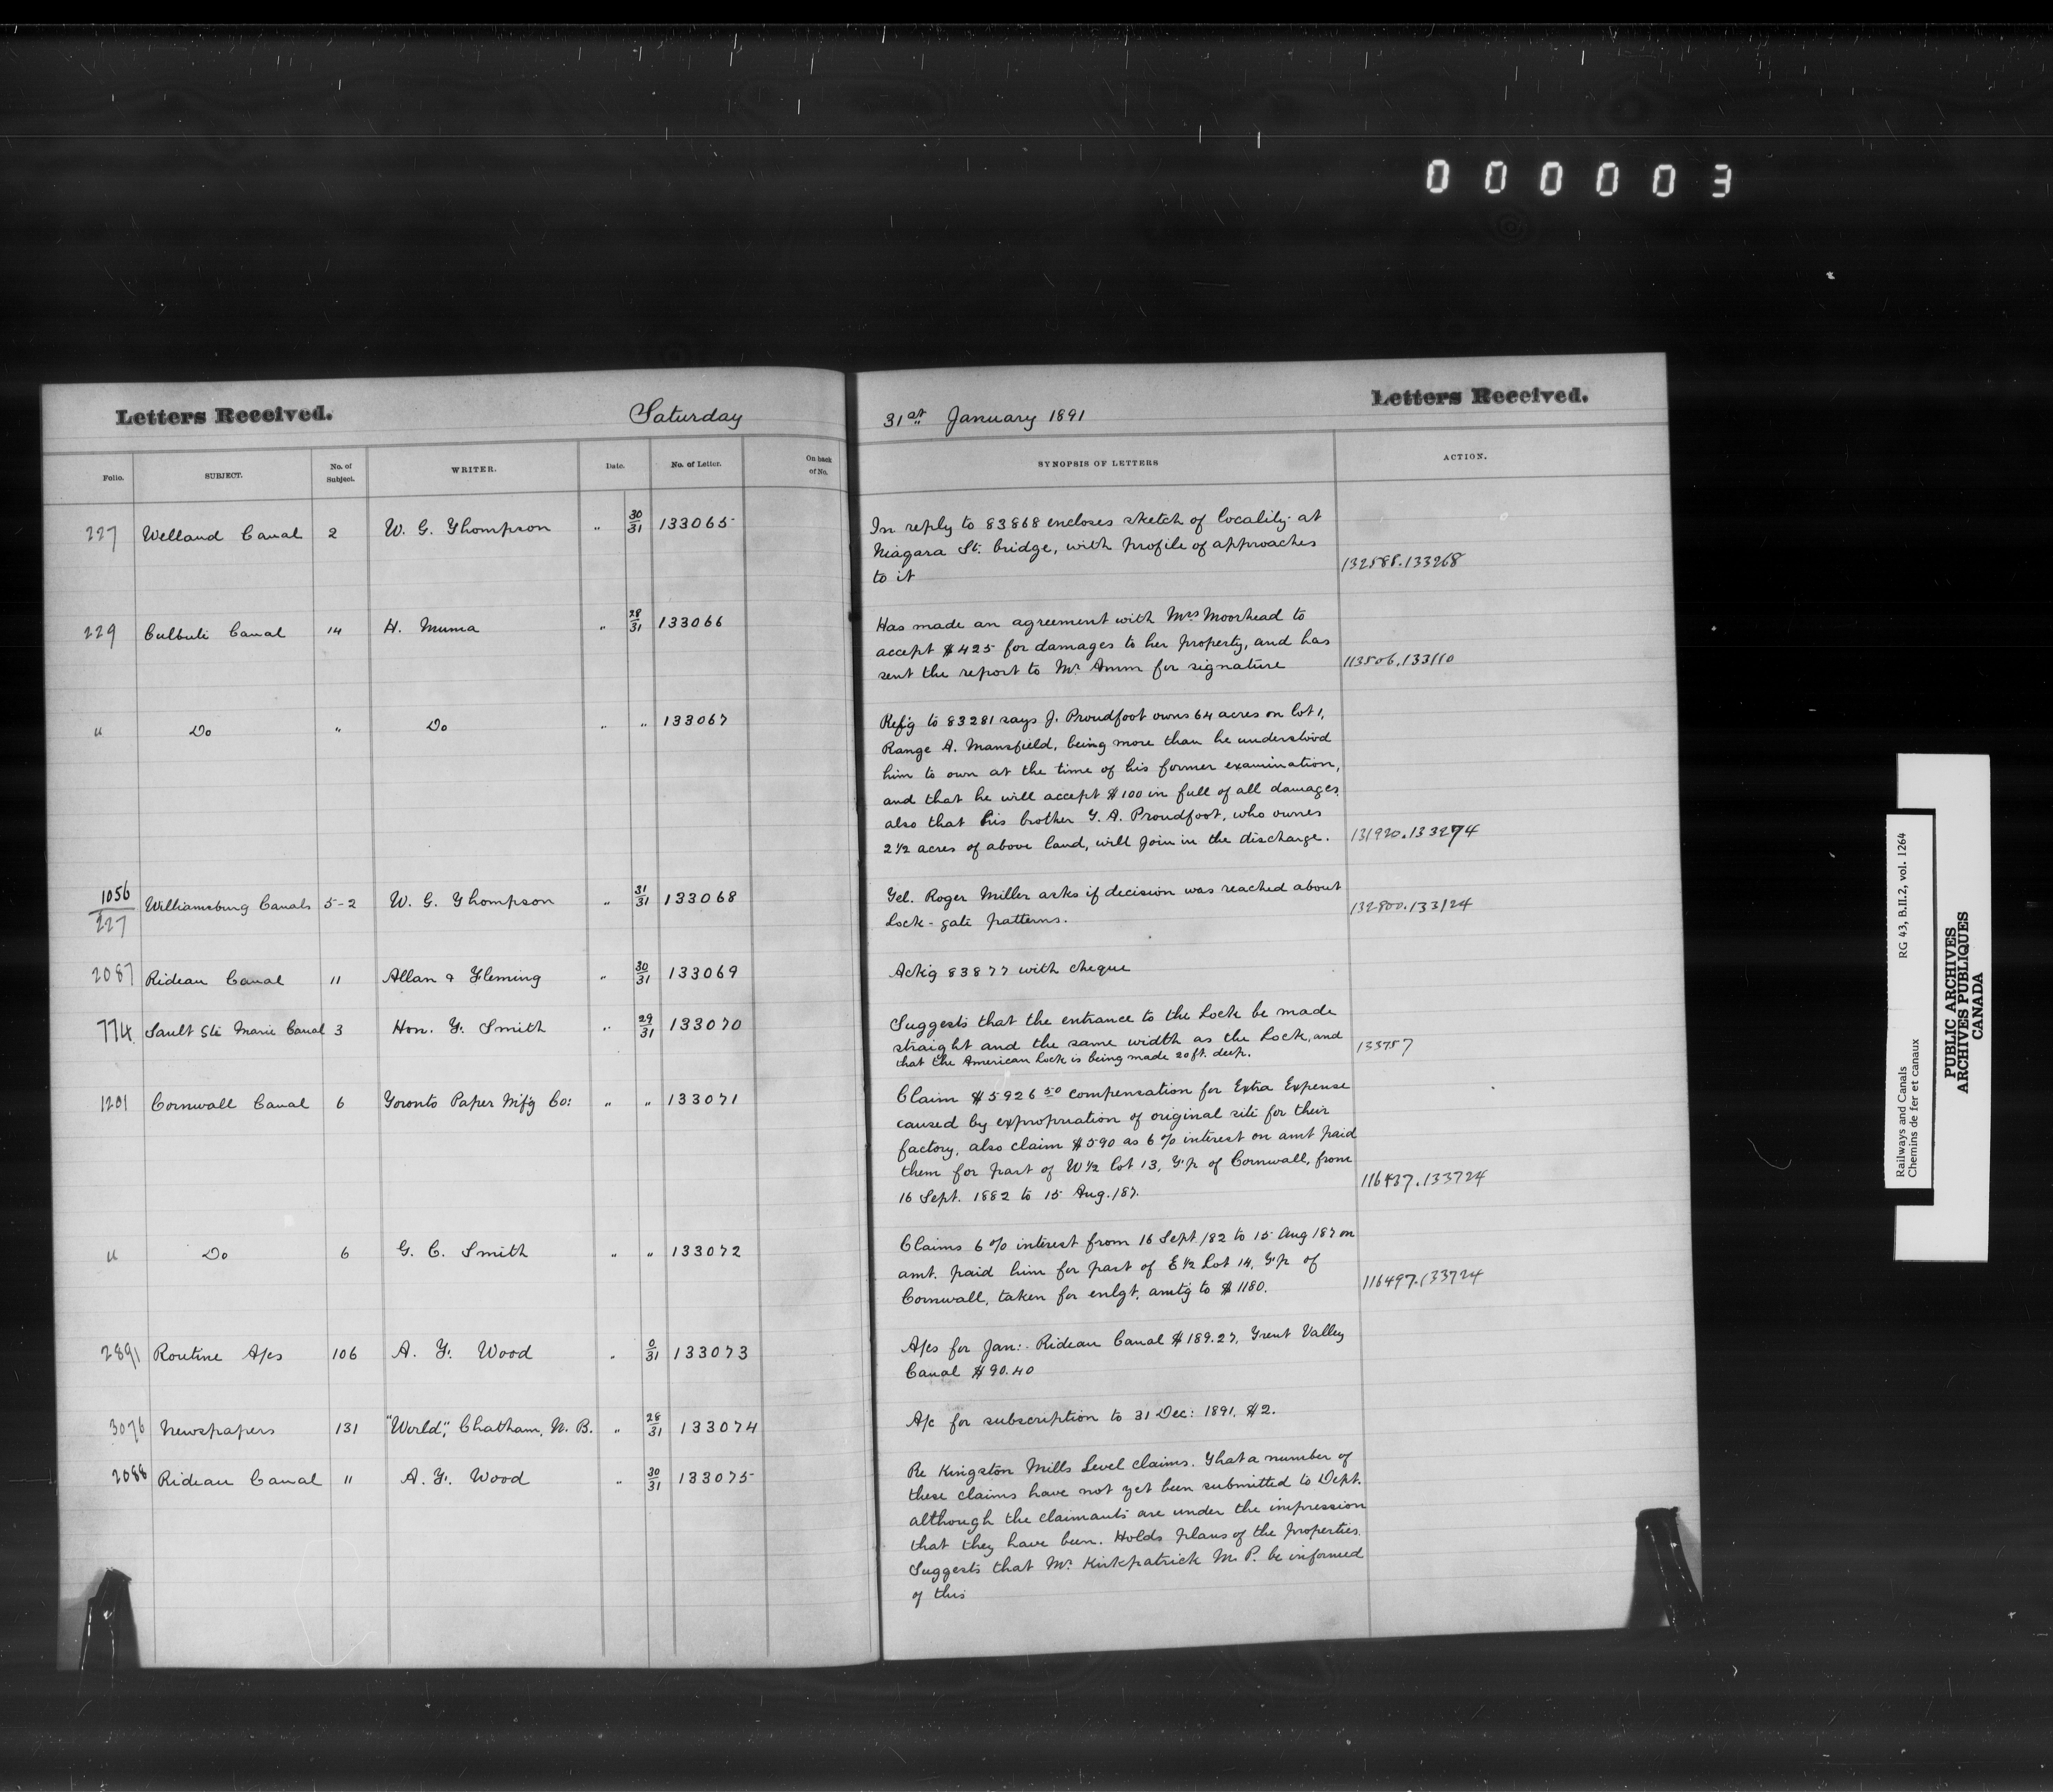 000003
Letters Received.
Saturday
31st January 1891
Letters Received.
Folio.
SUBJECT.
No. of Subject.
WRITER.
Date.
No. of Letter.
On back of No.
SYNOPSIS OF LETTERS
ACTION.
227 Welland Canal 2 W. G. Thompson " 30/31 133065
In reply to 83868 encloses sketch of locality at
Niagara St. bridge, with profile of approaches
to it
132585.133268
229 Culbute Canal 14 H. Muma " 28/31 133066
Has made an agreement with Mrs Moorhead to
accept $425 for damages to her property, and has
sent the report to Mr for signature
113506.133110
" Do " Do " " 133067
Ref'g to 83281 says J. Proudfoot owns 64 acres on lot 1,
Range A. Mansfield, being more than he understood
him to own at the time of his former examination,
and that he will accept $100 in full of all damages
also that his brother G. A. Proudfoot, who owns
2½ acres of above land, will join in the discharge.
131920.133274
1056/227 Williamsburg Canals 5-2 W. G. Thompson " 31/31 133068
Tel. Roger Miller asks if decision was reached about
Lock-gate patterns.
132800.133124
2087 Rideau Canal 11 Allan & Fleming " 30/31 133069
Ack'g 83877 with cheque
774 Sault Ste Marie Canal 3 Hon. F. Smith " 29/31 133070
Suggests that the entrance to the Lock be made
straight and the same width as the Lock, and
that the American Lock is being made 20 ft. deep.
133757
1201 Cornwall Canal 6 Toronto Paper Mf'g Co: " " 133071
Claim $5926 50 compensation for Extra Expense
caused by expropriation of original site for their
factory, also claim $590 as 6% interest on amt paid
them for part of W½ lot 13, T'p of Cornwall, from
16 Sept. 1882 to 15 Aug. '87.
116437.133724
" Do 6 G. C. Smith " " 133072
Claims 6% interest from 16 Sept /82 to 15 Aug '87 on
amt. paid him for part of E½ Lot 14, T'p of
Cornwall, taken for enlgt. amtg to $1180.
116497.133724
2891 Routine A/cs 106 A. F. Wood " 0/31 133073
A/cs for Jan: Rideau Canal $189.27, Trent Valley
Canal $90.40
3076 Newspapers 131 "World", Chatham, N. B. " 28/31 133074
A/c for subscription to 31 Dec: 1891. $2.
2088 Rideau Canal 11 A. F. Wood " 30/31 133075
Re Kingston Mills Level claims. That a number of
these claims have not yet been submitted to Dept.
although the claimants are under the impression
that they have been. Holds plans of the properties.
Suggests that Mr. Kirkpatrick M. P. be informed
of this
Railways and Canals RG 43, B.II.2, vol. 1264
Chemins de fer et canaux
PUBLIC ARCHIVES
ARCHIVES PUBLIQUES
CANADA